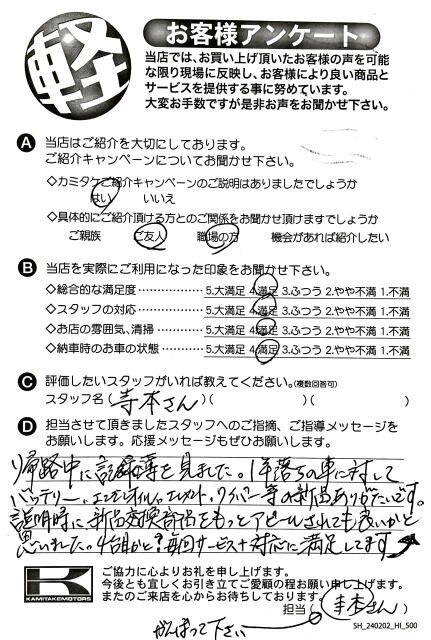 軽
お客様アンケート
当店では、お買い上げ頂いたお客様の声を可能
な限り現場に反映し、お客様により良い商品と
サービスを提供する事に努めています。
大変お手数ですが是非お声をお聞かせ下さい。
A 当店はご紹介を大切にしております。
ご紹介キャンペーンについてお聞かせ下さい。
◇カミタケご紹介キャンペーンのご説明はありましたでしょうか
はい いいえ
◇具体的にご紹介頂ける方とのご関係をお聞かせ頂けますでしょうか
ご親族 ご友人 職場の方 機会があれば紹介したい
B 当店を実際にご利用になった印象をお聞かせ下さい。
◇総合的な満足度 5.大満足 4.満足 3.ふつう 2.やや不満 1.不満
◇スタッフの対応 5.大満足 4.満足 3.ふつう 2.やや不満 1.不満
◇お店の雰囲気、清掃 5.大満足 4.満足 3.ふつう 2.やや不満 1.不満
◇納車時のお車の状態 5.大満足 4.満足 3.ふつう 2.やや不満 1.不満
C 評価したいスタッフがいれば教えてください。(複数回答可)
スタッフ名(寺本さん)( )( )
D 担当させて頂きましたスタッフへのご指摘、ご指導メッセージを
お願いします。応援メッセージもぜひお願いします。
帰路中に記録簿を見ました。1年落ちの車に対して
バッテリー、エンジンオイル、エレメント、ワイパー等の新品ありがたいです。
説明時に新品交換部品をもっとアピールされても良いかと
思いました。4台目かな?毎回サービス+対応に満足してます
K KAMITAKEMOTORS
ご協力に心よりお礼を申し上げます。
今後とも宜しくお引き立てご愛顧の程お願い申し上げます。
またのご来店を心からお待ちしております。
担当(寺本さん)
SH_240202_HI_500
がんばって下さい